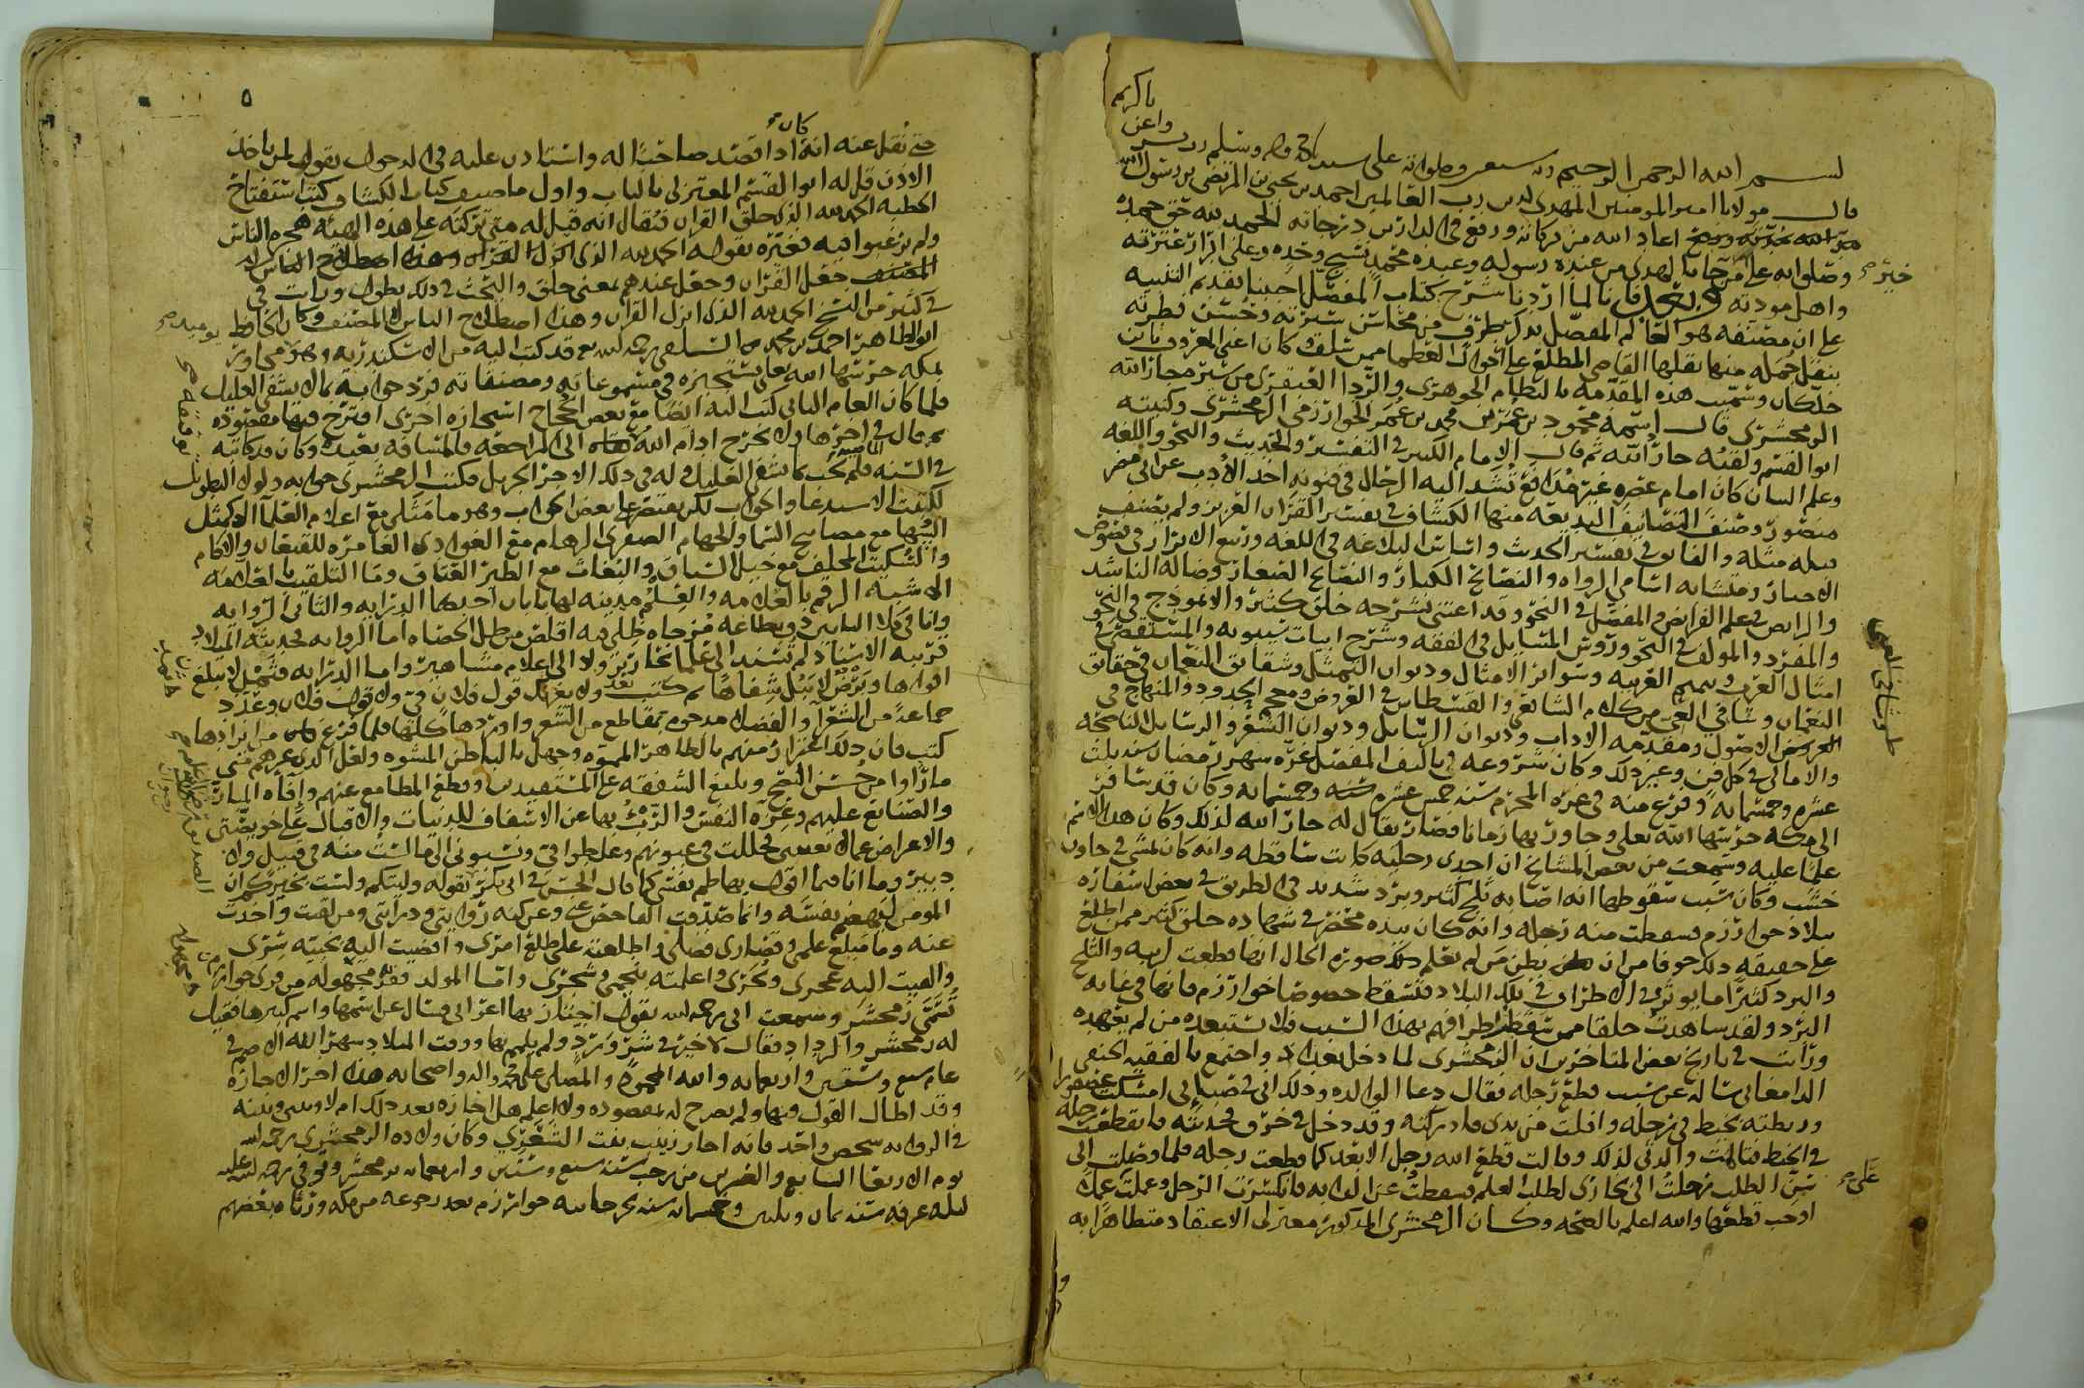 يا كريم
واعن
بسم الله الرحمن الرحيم وبه نستعين وصلواته على سيدنا محمد وآله وسلم
قال مولانا امير المؤمنين المهدي لدين رب العالمين احمد بن يحيى بن المرتضى بن رسول الله
اعاد الله من بركاته ورفع في الدارين درجاته الحمد لله حق حمده
وصلواته على من جا بالهدى من عنده رسوله وعبده محمد نسيج وحده وعلى ابرار عترته
خيره
واهل مودته وبعد فانا لما اردنا شرح كتاب المفصل احببنا تقديم التنبيه
على ان مصنفه هو العالم المفضل بذكر طرف من محاسن سيرته وحسن فطرته
بنقل جمله منها نقلها القاضي المطلع على احوال العظما ممن سلف وكان اعني المعروف بابن
خلكان وسميت هذه المقدمة بالنظام الجوهري والردا العبقري من سير جار الله
الزمخشري قال اسمه محمود بن عمر بن محمد بن عمر الخوارزمي الزمخشري وكنيته
ابو القسم ولقبه جار الله ثم قال الامام الكبير في التفسير والحديث والنحو واللغه
وعلم البيان كان امام عصره غير مدافع تشد اليه الرحال في فنونه اخذ الادب عن ابي مضر
منصور وصنف التصانيف البديعه منها الكشاف في تفسير القران العزيز ولم يصنف
قبله مثله والفايق في تفسير الحديث واساس البلاغه في اللغه وربيع الابرار وفصوص
الاخبار ومتشابه اسامي الرواه والنصائح الكبار والنصائح الصغار وضاله الناشد
والرايض في علم الفرايض والمفصل في النحو وقد اعتنى بشرحه خلق كثير والانموذج في النحو
والمفرد والمولف في النحو ورؤس المسايل في الفقه وشرح ابيات سيبويه والمستقصى في
امثال العرب وصميم العربيه وسواير الامثال وديوان التمثل وشقائق النعمان في حقائق
النعمان وشافي العي من كلام الشافعي والقسطاس في العروض ومعجم الحدود والمنهاج في
الاصول ومقدمه الاداب وديوان الرسايل وديوان الشعر والرسايل الناصحه
والامالي في كل فن وغير ذلك وكان شروعه في تاليف المفصل غره شهر رمضان سنه ثلث
عشره وخمسمائه وفرغ منه في غره المحرم سنه خمس عشره وخمسمائه وكان قد سافر
الى مكه حرسها الله تعلى وجاور بها زمانا فصار يقال له جار الله لذلك وكان هذا الاسم
علما عليه وسمعت من بعض المشايخ ان احدى رجليه كانت ساقطه وانه كان يمشي في جاون
خشب وكان سبب سقوطها انه اصابه ثلج كثير وبرد شديد في الطريق في بعض اسفاره
ببلاد خوارزم فسقطت منه رجله وانه كان بيده محضر فيه شهاده خلق كثير ممن اطلع
على حقيقه ذلك خوفا من ان يظن من لم يعلم صوره الحال انها قطعت لريبه والثلج
والبرد كثيرا ما يوثر في الاطراف في تلك البلاد فتسقط خصوصا خوارزم فانها في غايه
البرد ولقد شاهدت خلقا ممن سقطت اطرافهم بهذا السبب فلا يستبعده من لم يعهده
ورأت في تاريخ بعض المتاخرين ان الزمخشري لما دخل بغداد واجتمع بالفقيه الحنفي
الدامغاني ساله عن سبب قطع رجله فقال دعا الوالده وذلك اني في صباي امسكت عصفورا
وربطته بخيط في رجله وافلت من يدي فادركته وقد دخل في خرق فجذبته فانقطعت رجله
في الخيط فتالمت والدتي لذلك وقالت قطع الله رجل الابعد كما قطعت رجله فلما وصلت الى
سن الطلب رحلت الى بخارى لطلب العلم فسقطت عن الدابه فانكسرت الرجل وعملت عملا
على
اوجب قطعها والله اعلم بالصحه وكان الزمخشري المذكور معتزلي الاعتقاد متظاهرا به
٥
كان
حتى نقل عنه انه اذا قصد صاحبا له واستاذن عليه في الدخول يقول لمن ياخذ
الاذن قل له ابو القسم المعتزلي بالباب واول ما صنف كتاب الكشاف كتب استفتاح
الخطبه الحمد لله الذي خلق القران فيقال انه قيل له متى تركته على هذه الهيئه هجره الناس
ولم يرغبوا فيه فغيره بقوله الحمد لله الذي
جعل القران وجعل عندهم بمعنى خلق والبحث في ذلك يطول ورأت في
كثير من النسخ الحمد لله الذي انزل القران وهذا اصطلاح الناس لا المصنف وكان الحافظ
ابو الطاهر احمد بن محمد السلفي رحمه الله قد كتب اليه من الاسكندريه وهو مجاور
بمكه حرسها الله تعالى يستجيزه في مسموعاته ومصنفاته فرد جوابه بما لا يشفي الغليل
فلما كان العام الثاني كتب اليه ايضا مع بعض الحجاج استجازه اخرى اقترح فيها مقصوده
ثم قال في اخرها ولا يحوج ادام الله الى المراجعه فالمسافه بعيده وكان قد كاتبه
في السنه فلم يجب بما يشفي الغليل وله في ذلك الاجر الجزيل فكتب الزمخشري جوابه ولولا التطويل
لكتبت الاستدعا والجواب لكن نقتصر على بعض الجواب وهو ما مثلي مع اعلام العلما الا كمثل
السها مع مصابيح السما والجهام الصفر مع الرهام مع الغوادي الغامره للقيعان والاكام
والسكيت المخلف مع خيل السباق والبغاث مع الطير العتاق وما التلقيب بالعلامه
الا شبه الرقم بالعلامه والعلم مدينه لها بابان احدهما الدرايه والثاني الروايه
وانا في كلا البابين ذو بضاعه مزجاه ظلي فيه اقلص من ظل الحصاه اما الروايه فحديثه الميلاد
قريبه الاسناد لم تستند الى علما نحارير ولا الى اعلام مشاهير واما الدرايه فثمد لا يبلغ
افواها وبرض لا يبل شفاها ثم كتب بعد ولا يغرنكم قول فلان في ولا قول فلان وعدد
جماعه من الشعرا والفضلا مدحوه بمقاطع من الشعر واوردها كلها فلما فرغ من ايرادها
كتب فان ذلك اغترار منهم بالظاهر المموه وجهل بالباطن المشوه ولعل الذي غرهم مني
ما راوا من حسن النصح وبليغ الشفقه على المستفيدين وقطع المطامع عنهم وافاه المبار
والصنائع عليهم وعزه النفس والربء بها عن الاسفاف للدنيات والاقبال على خويصتي
والاعراض عما لا يعنيني فجللت في عيونهم وغلطوا في ونسبوني الى ما لست منه في قبيل ولا
دبير وما انا فيما اقول بهاضم لنفسي كما قال الحسن في ابي بكر بقوله وليتكم ولست بخيركم ان
المومن ليهضم نفسه وانما صدقت الفاحص عني وعن كنه روايتي ودرايتي ومن لقيت واخذت
عنه وما مبلغ علمي وقصارى فضلي واطلعته على طلع امري وافضيت اليه بخبيه سري
والقيت اليه عجري وبجري واعلمته بنجمي وشجري واما المولد فقريه مجهوله من قرى خوارزم
تسمى زمخشر وسمعت ابي رحمه الله يقول اجتاز بها اعرابي فسال عن اسمها واسم كبيرها فقيل
له زمخشر والرداد فقال لا خير في شر ورد ولم يلمم بها ووقت الميلاد شهر الله الاصم في
عام سبع وستين واربعمايه والله المحمود والمصلى على محمد واله واصحابه هذا اخر الاجازه
وقد اطال القول فيها ولم يصرح له بمقصوده ولا اعلم هل اجازه بعد ذلك ام لا وبيني وبينه
في الروايه شخص واحد فانه اجاز زينب بنت الشعري وكانت ولاده الزمخشري رحمه الله
يوم الاربعا السابع والعشرين من رجب سنه سبع وستين واربعمائه بزمخشر وتوفي رحمه الله عليه
ليله عرفه سنه ثمان وثلثين وخمسمائه بجرجانيه خوارزم بعد رجوعه من مكه ورثاه بعضهم